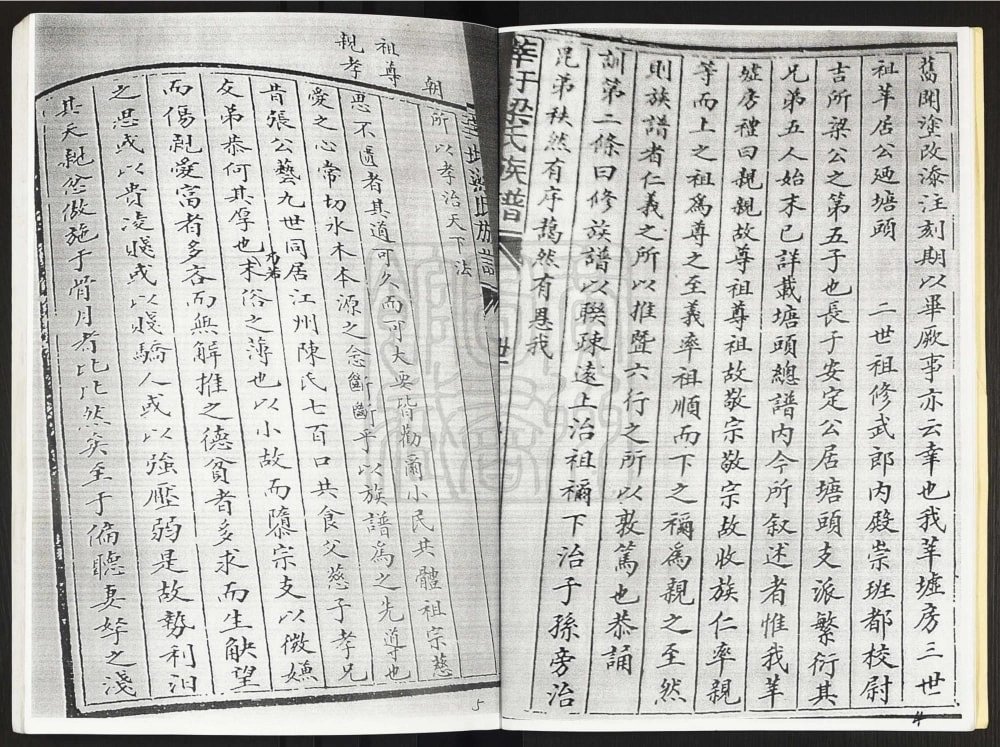 舊閱塗改添注刻期以畢厥事亦云幸也我莘墟房三世
祖莘居公廼塘頭　二世祖修武郎內殿崇班都校尉
吉所梁公之第五子也長子安定公居塘頭支派繁衍其
兄弟五人始末已詳載塘頭總譜內今所叙述者惟我莘
墟房禮曰親親故尊祖尊祖故敬宗敬宗故收族仁率親
等而上之祖爲尊之至義率祖順而下之禰為親之至然
則族譜者仁義之所以推暨六行之所以敦篤也恭誦
訓第二條曰修族譜以聯疎遠上治祖禰下治子孫旁治
昆弟秩然有序藹然有恩我
莘圩梁氏族譜
朝所以孝治天下法
祖尊
親孝
思不匱者其道可久而可大要皆勸爾小民其體祖宗慈
愛之心常切水木本源之念斷斷乎以族譜爲之先導也
昔張公藝九世同居江州陳氏七百口共食父慈子孝兄
友弟恭何其厚也末俗之薄也以小故而隳宗支以微嫌
而傷親愛富者多吝而無解推之德貧者多求而生觖望
之思或以貴凌賤或以賤驕人或以強壓弱是故勢利汨
其天親忿傲施于骨月者比比然矣至于偏聽妻孥之淺
5
4